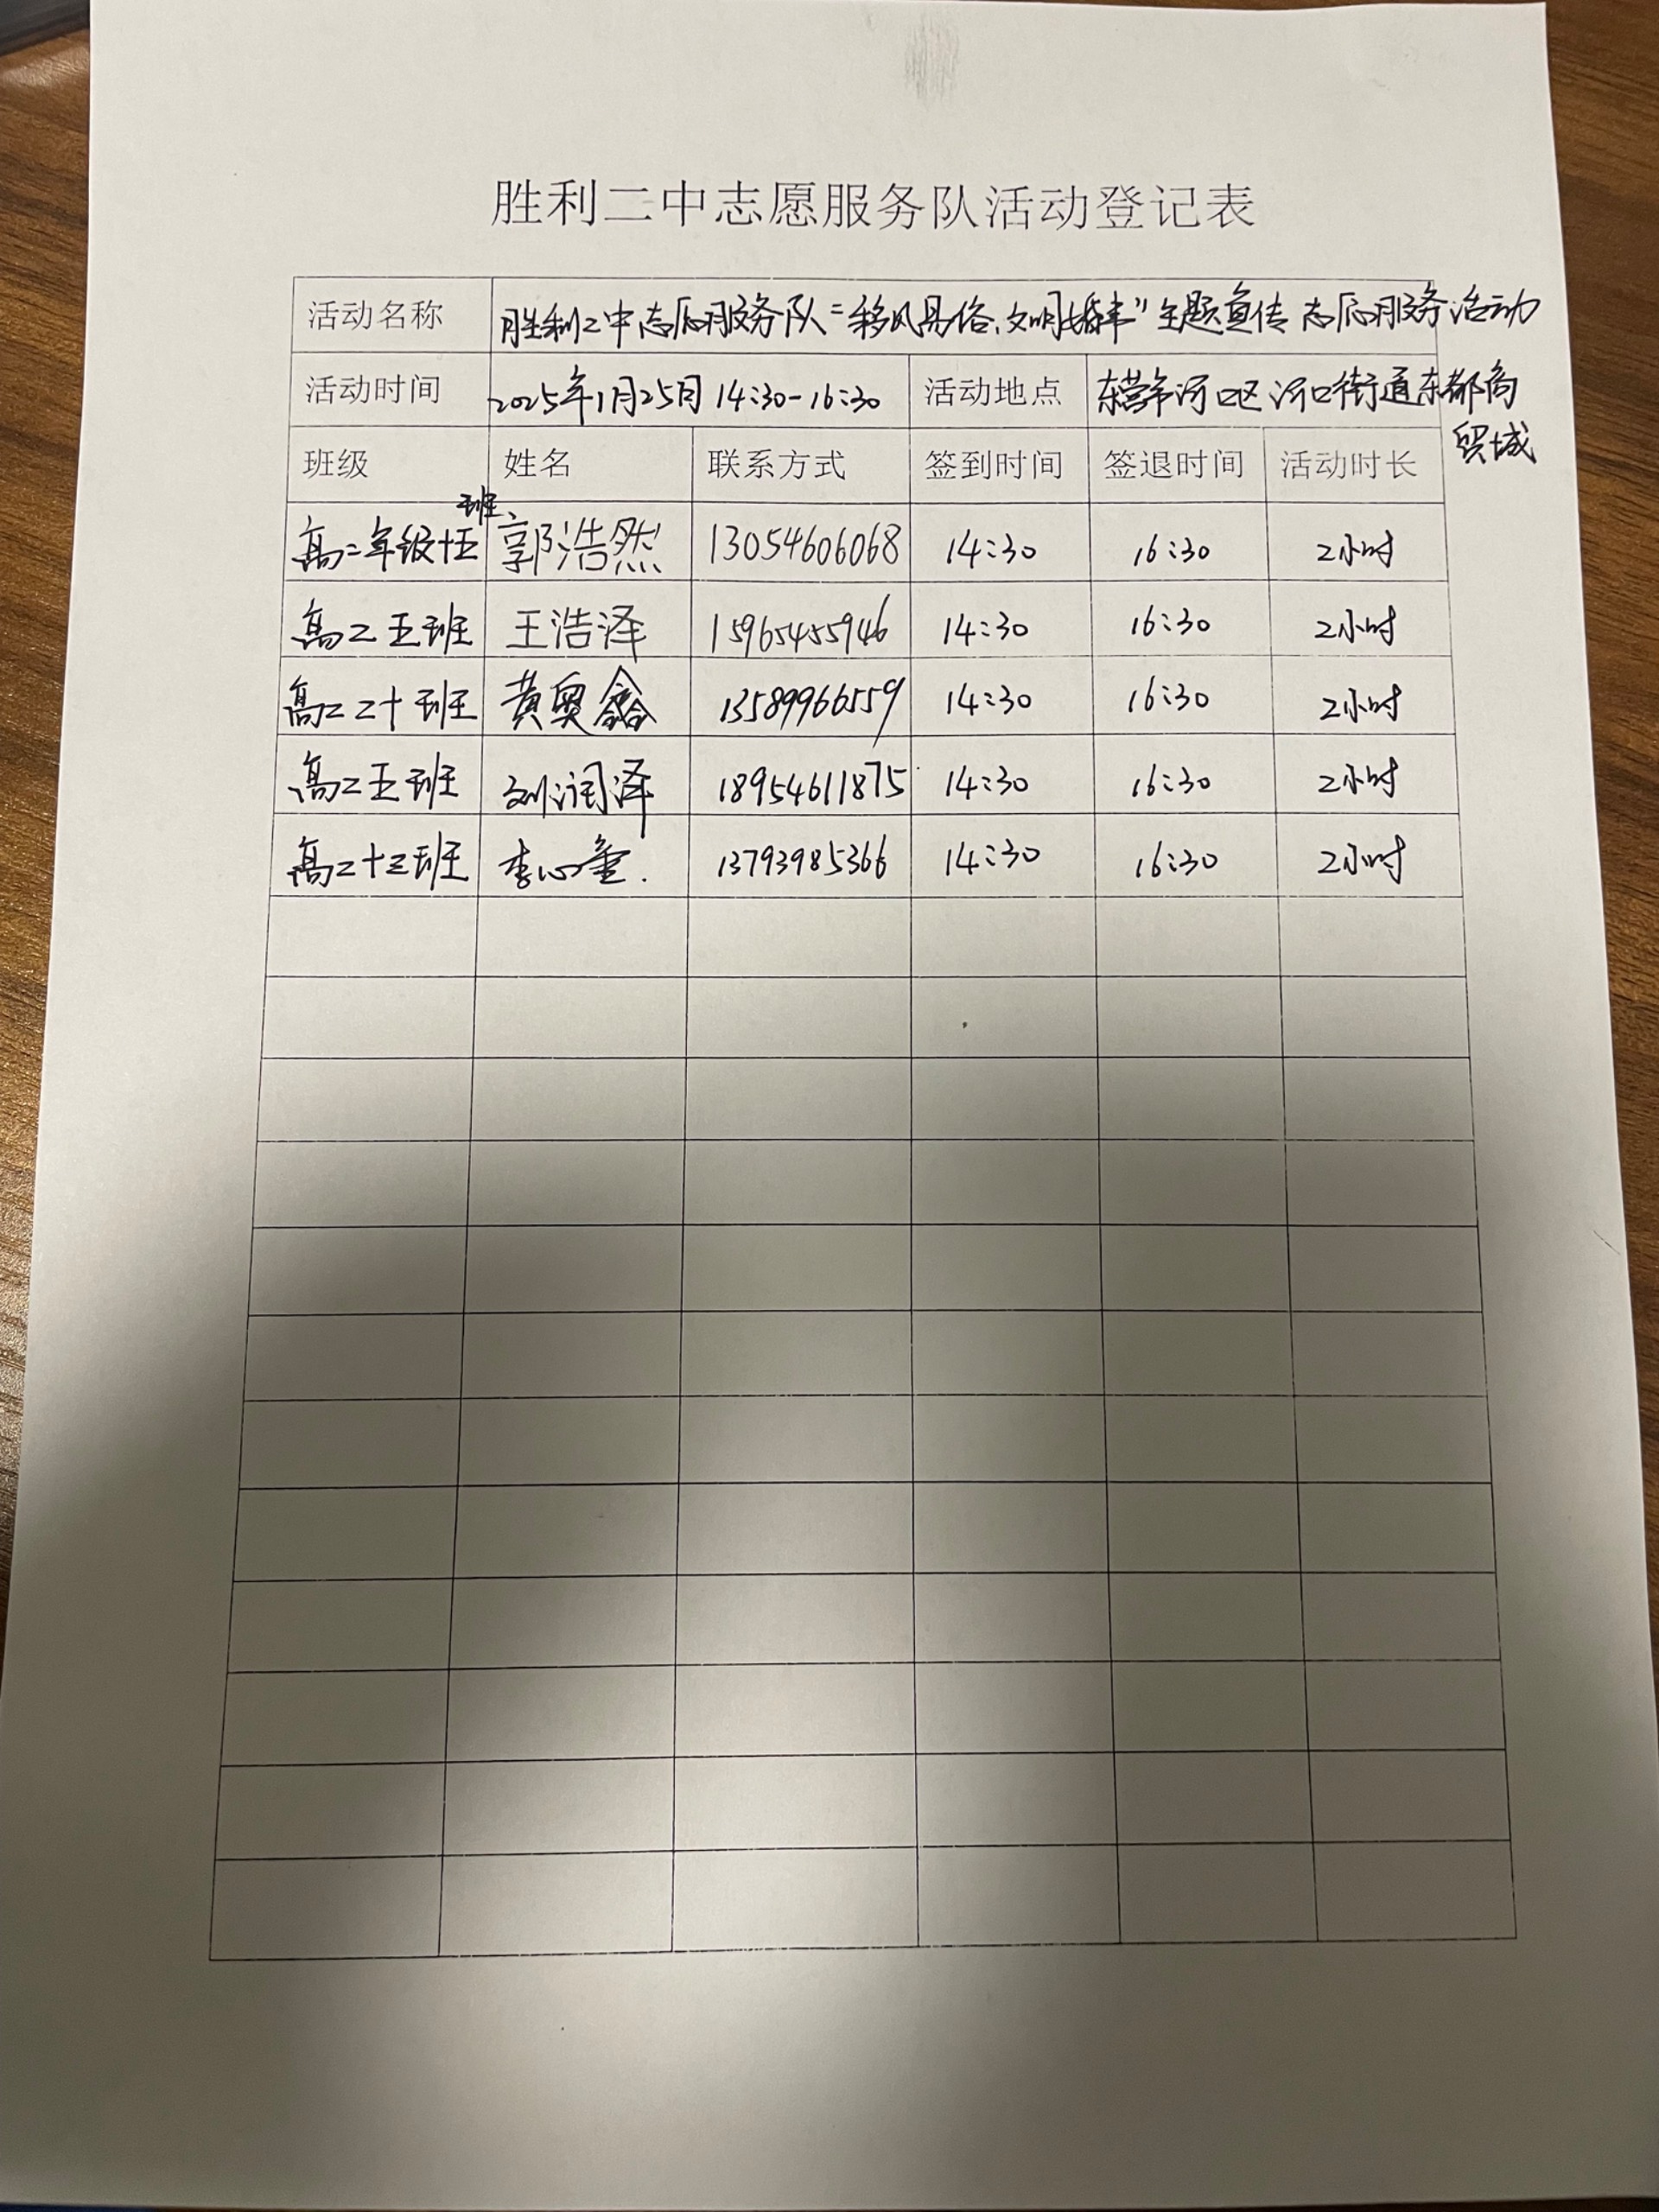 胜利二中志愿服务队活动登记表
活动名称 胜利二中志愿服务队“移风易俗、文明婚事”主题宣传志愿服务活动
活动时间 2025年1月25日 14:30-16:30 活动地点 东营市河口区河口街道东都商
贸城
班级 姓名 联系方式 签到时间 签退时间 活动时长
高二年级十五班 郭浩然 13054606068 14:30 16:30 2小时
高二五班 王浩泽 15965455946 14:30 16:30 2小时
高二二十班 黄奥鑫 13589966559 14:30 16:30 2小时
高二五班 刘润泽 18954611875 14:30 16:30 2小时
高二十三班 李心 13793985366 14:30 16:30 2小时